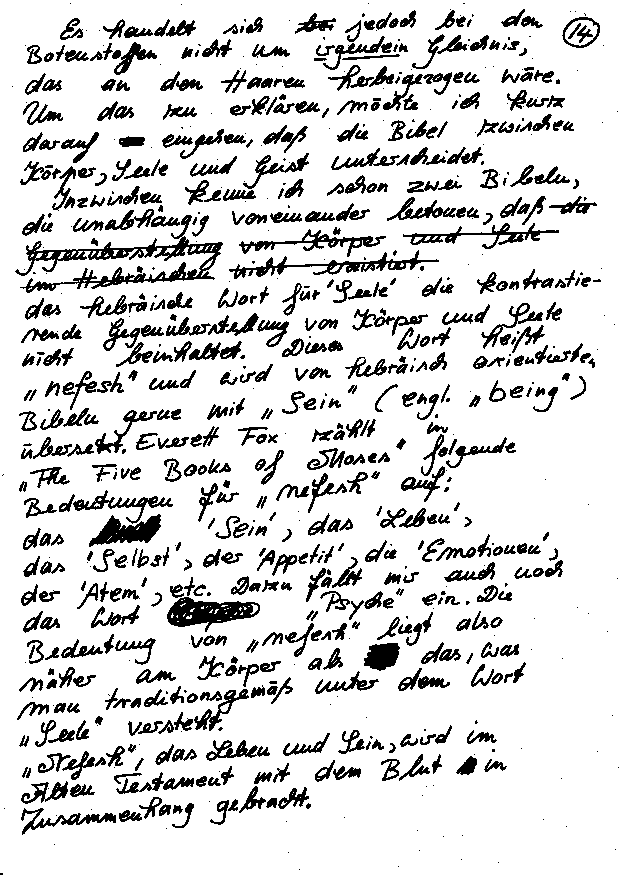 Es handelt sich bei jedoch bei den 14.
Botenstoffen nicht um irgendein Gleichnis,
das an den Haaren herbeigezogen wäre.
Um das zu erklären, möchte ich kurz
darauf eingehen, daß die Bibel zwischen
Körper, Seele und Geist unterscheidet.
Inzwischen kenne ich schon zwei Bibeln,
die unabhängig voneinander betonen, daß die
Gegenüberstellung von Körper und Seele
im Hebräischen nicht existiert.
das hebräische Wort für 'Seele' die kontrastie-
rende Gegenüberstellung von Körper und Seele
nicht beinhaltet. Dieses Wort heißt
„nefesh" und wird von hebräisch orientierten
Bibeln gerne mit „Sein" (engl. „being")
übersetzt. Everett Fox zählt in
„The Five Books of Moses" folgende
Bedeutungen für „nefesh" auf:
das 'Sein', das 'Leben',
das 'Selbst', der 'Appetit', die 'Emotionen',
der 'Atem', etc. Dazu fällt mir auch noch
das Wort „Psyche" ein. Die
Bedeutung von „nefesh" liegt also
näher am Körper als das, was
man traditionsgemäß unter dem Wort
„Seele" versteht.
„Nefesh", das Leben und Sein, wird im
Alten Testament mit dem Blut in
Zusammenhang gebracht.